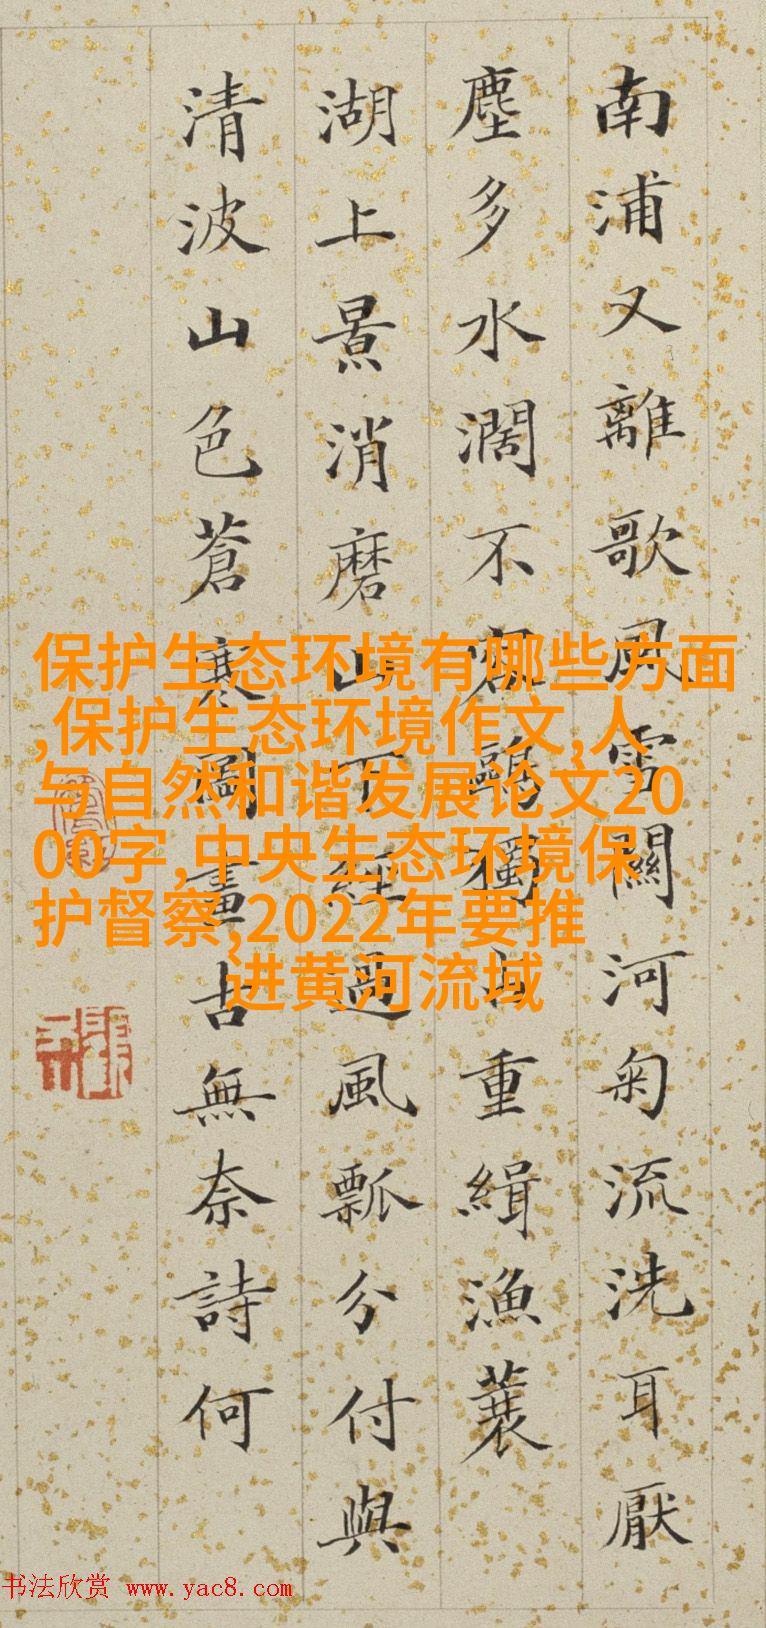 南浦又離歌風雪關河菊流洗耳厭
塵多水濶不鷗獨重緝漁蓑
湖上景消磨山下經過風瓢分付與
清波山色蒼寒圖畫古無奈詩何
保护生态环境有哪些方面
,保护生态环境作文,人
与自然和谐发展论文20
00字,中央生态环境保
护督察,2022年要推
进黄河流域
书法欣赏 www.yac8.com